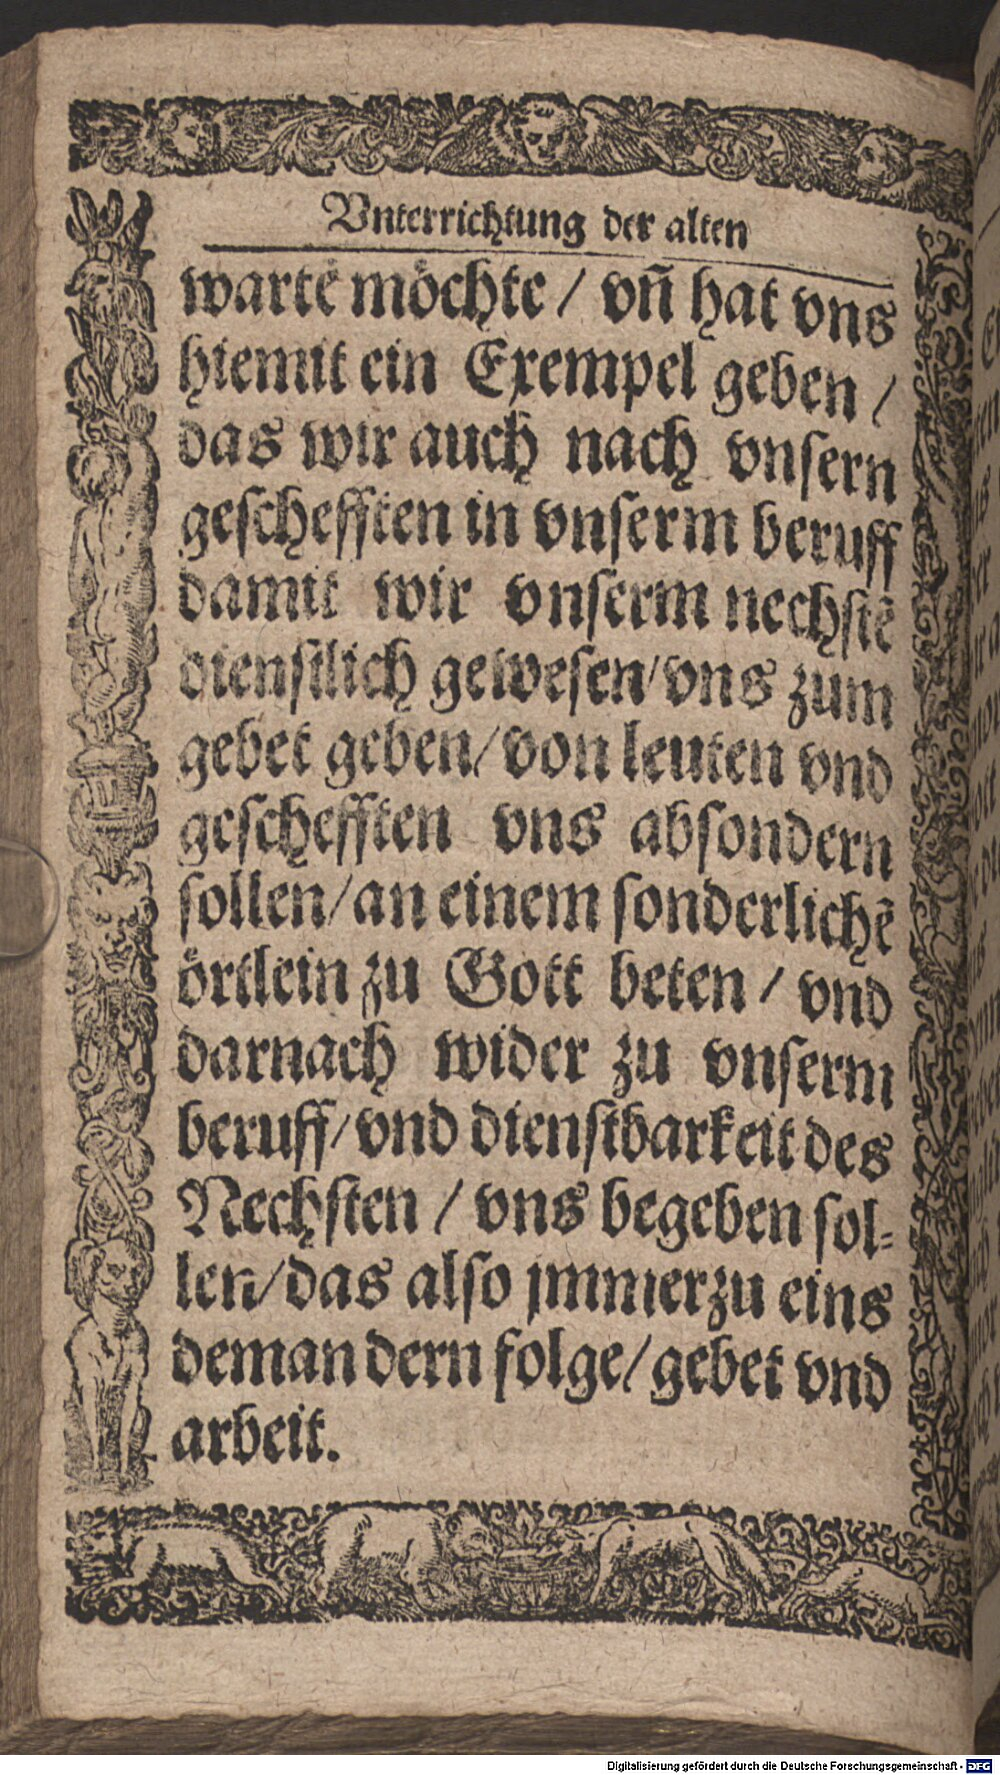 Vnterrichtung der alten
wartẽ möchte / vñ hat vns
hiemit ein Exempel geben /
das wir auch nach vnsern
geschefften in vnserm beruff
damit wir vnserm nechstẽ
dienstlich gewesen / vns zum
gebet geben / von leuten vnd
geschefften vns absondern
sollen / an einem sonderlichẽ
örtlein zu Gott beten / vnd
darnach wider zu vnserm
beruff / vnd dienstbarkeit des
Nechsten / vns begeben sol-
len / das also jmmerzu eins
dem andern folge / gebet vnd
arbeit.
Digitalisierung gefördert durch die Deutsche Forschungsgemeinschaft - DFG